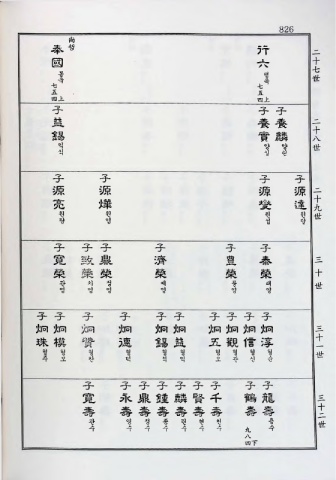 826
二十七世
行六 행륙 上 七五四
尚哲
奉國 봉국 上 七五四
二十八世
子養麟 양린
子養實 양실
子益錫 익석
二十九世
子源達 원달
子源燮 원섭
子源燁 원엽
子源亮 원량
三十世
子泰榮 태영
子豊榮 풍영
子濟榮 제영
子鼎榮 정영
子致榮 치영
子寬榮 관영
三十一世
子炯淳 형순
子炯信 형신
子炯觀 형관
子炯五 형오
子炯益 형익
子炯錫 형석
子炯德 형덕
子炯贊 형찬
子炯模 형모
子炯珠 형주
三十二世
子龍壽 용수
子鶴壽 下 九八四
子千壽 천수
子賢壽 현수
子麟壽 린수
子鍾壽 종수
子鼎壽 정수
子永壽 영수
子寬壽 관수